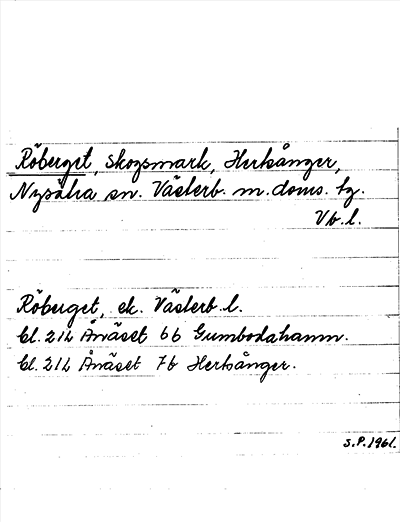 Röberget, skogsmark, Herrsånger,
Nysätra sn. Västerb. m. doms. tg.
Vb. l.
Röberget, ek. Västerb. l.
bl. 21L Ånäset 6b Gumbodahamn.
bl. 21L Ånäset 7b Hertsånger.
S.P. 1961.